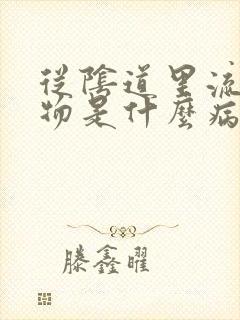 從陰道里流
物是什麼病
滕鑫曜